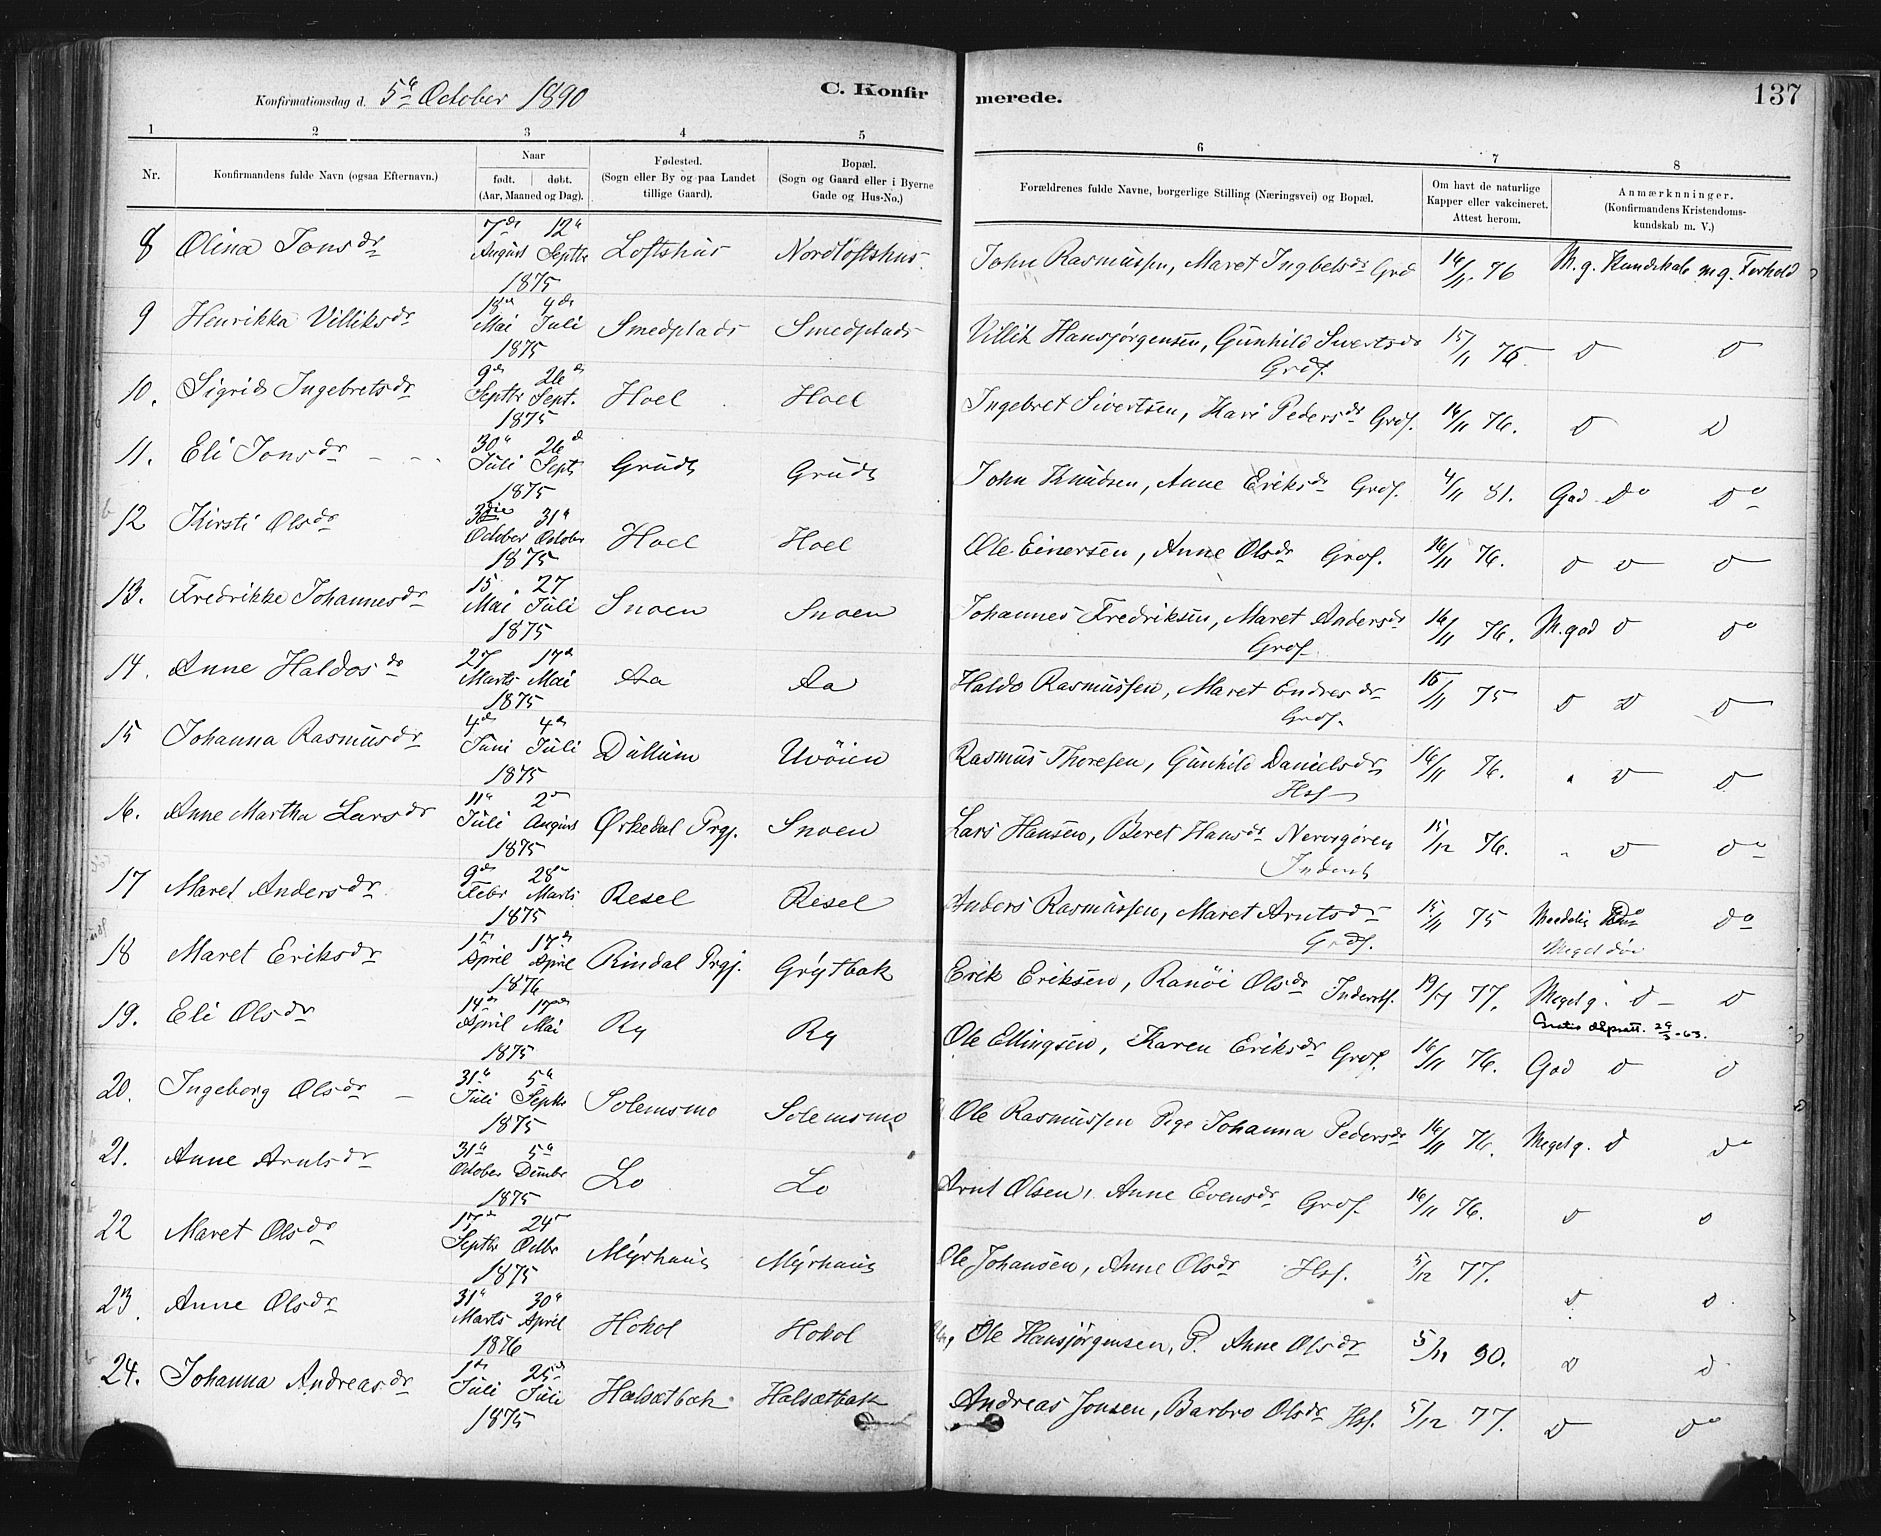 Konfirmationsdag d. 5te October 1890
C. Konfirmerede.
137
1 2 3 4 5 6 7 8
Nr.
Konfirmandens fulde Navn (ogsaa Efternavn.)
Naar
født. døbt.
(Aar, Maaned og Dag).
Fødested.
(Sogn eller By og paa Landet
tillige Gaard).
Bopæl.
(Sogn og Gaard eller i Byerne
Gade og Hus-No.)
Forældrenes fulde Navne, borgerlige Stilling (Næringsvei) og Bopæl.
Om havt de naturlige
Kapper eller vakcineret.
Attest herom.
Anmærkninger.
(Konfirmandens Kristendoms-
kundskab m. V.)
8 Olina Jonsdr 7de August 12te Septbr 1875 Loftshus Nordløftshus John Rasmussen, Maret Ingbelsdr Grd 16/11 76 M.g. Kundskab m.g. Forhold
9 Henrikka Villiksdr 18de Mai 4de Juli 1875 Smedplads Smedplads Villik Hansjørgensen, Gunhild Sivertsdr Grdf. 15/11 76 D D
10. Sigrid Ingebretsdr 9de Septbr 26de Sept. 1875 Hoel Hoel Ingebret Sivertsen, Kari Pedersdr Grdf. 16/11 76. D D
11. Eli Jonsdr 30te Juli 26de Sept 1875 Grudt Grudt John Knudsen, Anne Eriksdr Grdf. 4/11 81. God Do Do
12 Kirsti Olsdr October 31te October 1875 Hoel Hoel Ole Einersen, Anne Olsdr Grdf. 16/11 76. D D D
13. Fredrikke Johannesdr 15. Mai 27 Juli 1875 Snoen Snoen Johannes Fredriksen, Maret Andersdr Grdf. 16/11 76. M. god D Do
14. Anne Haldosdr 27 Marts 17de Mai 1875 Aa Aa Haldo Rasmussen, Maret Endresdr Grdf. 15/11 75 D D D
15 Johanna Rasmusdr 4de Juni 4de Juli 1875 Dullum Uvøien Rasmus Thoresen, Gunhild Danielsdr Hsf 16/11 76. " D D
16. Anne Martha Larsdr 11te Juli 2den August 1875 Ørkedal Prgj. Snoen Lars Hansen, Beret Hansdr 15/12 76. " D Do
17 Maret Andersdr 9de Febr 28de Marts 1875 Resel Resel Anders Rasmussen, Maret Arntsdr Grdf. 15/11 75 Do do
18 Maret Eriksdr 1ste April 17de April 1876 Rindal Prgj. Grytbak Erik Eriksen, Ranøi Olsdr Inderstf. 19/7 77. Meget g. D D
19. Eli Olsdr 14de April 17de Mai 1875 Ry Ry Ole Ellingsen, Karen Eriksdr Grdf. 16/11 76. God D D
20. Ingeborg Olsdr 31te Juli 5te Septbr 1875 Solemsmo Solemsmo Ole Rasmussen Pige Johanna Pedersdr 16/11 76. Meget g. D Do
21. Anne Arntsdr 31te October 5te Dcmbr 1875 Lo Lo Arnt Olsen, Anne Evensdr Grdf. 16/11 76. D D
22 Maret Olsdr 17de Septbr 24de Octbr 1875 Myrhaug Myrhaug Ole Johansen, Anne Olsdr Hsf. 5/12 77. D D
23. Anne Olsdr 31te Marts 30te April 1876 Hokol Hokol Ole Hansjørgensen, P. Anne Olsdr 5/11 90. D D
24. Johanna Andreasdr 1ste Juli 25de Juli 1875 Halsætbak Halsætbak Andreas Jonsen, Barbro Olsdr Hsf. 5/12 77. D Do